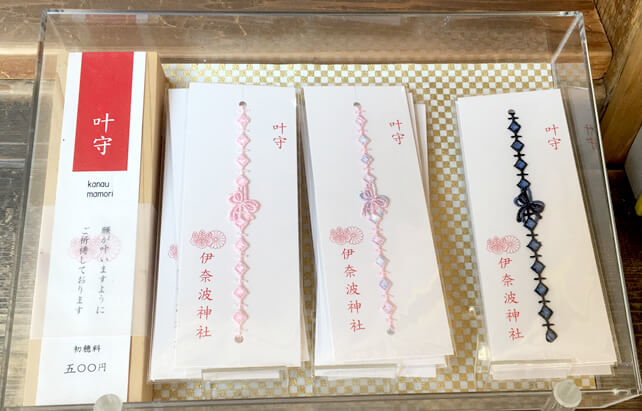 叶守
kanau
mamori
願が叶いますように
ご祈祷しております
初穂料
五〇〇円
叶守
伊奈波神社
叶守
伊奈波神社
叶守
伊奈波神社